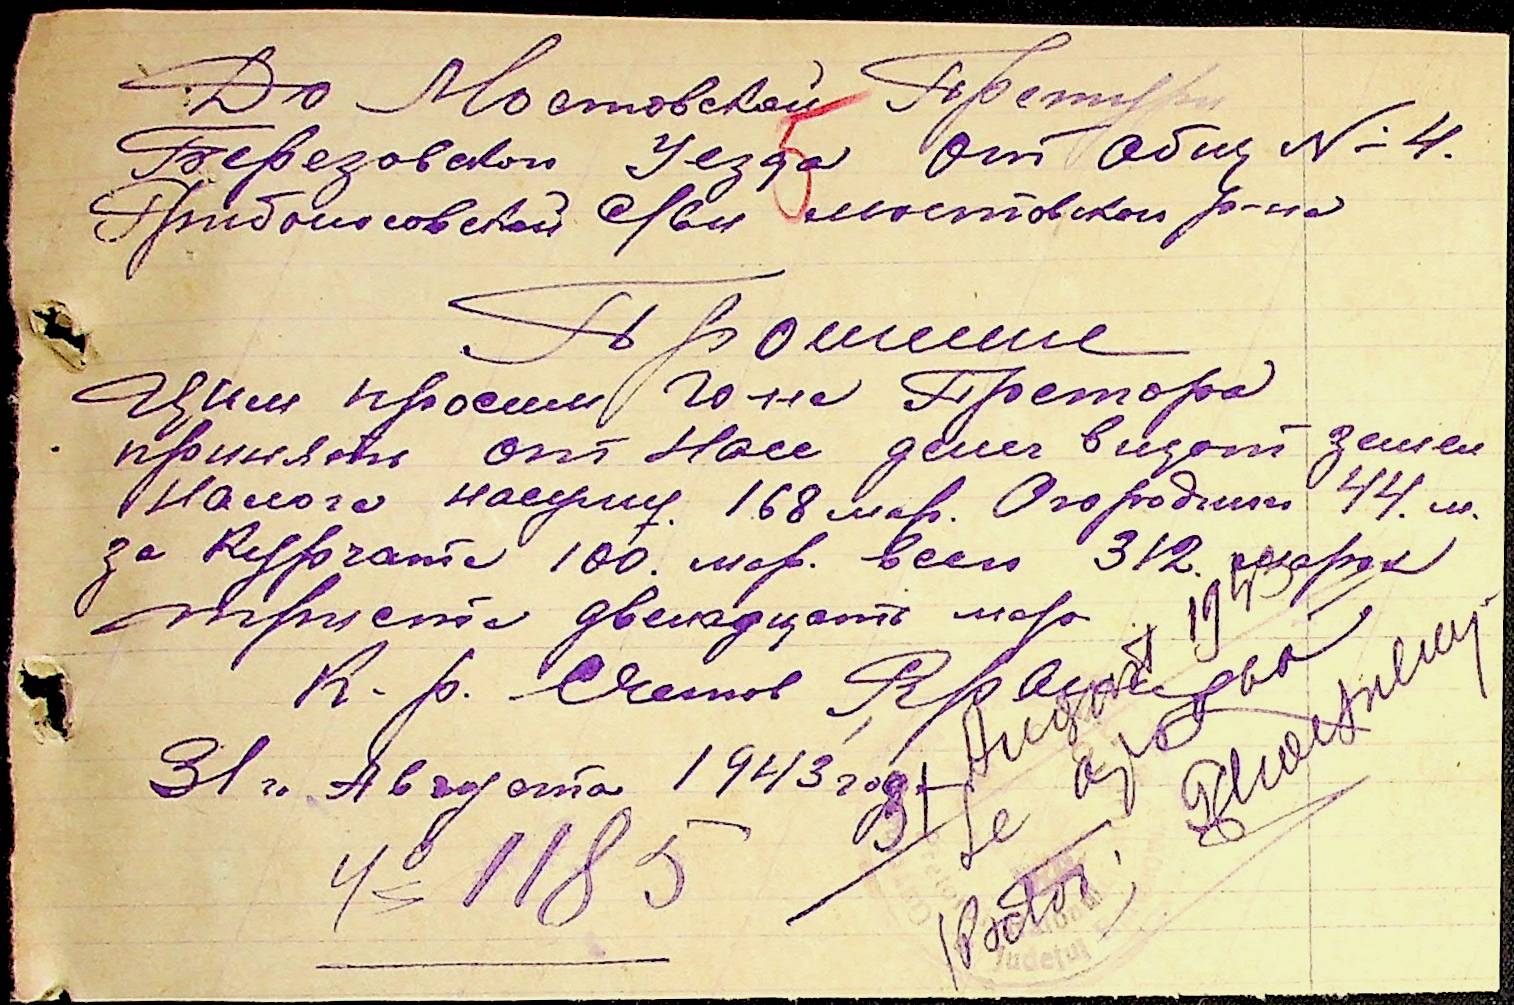 До Мостовской Претури
Березовского Уезда от Общ № 4.
5
с/ви мостовского р-на
Прошение
Цим просим Го-на Претора
принять от Насс денег в щот земел
Налога насуму. 168 мар. Огородним 44. м.
за Курчата 100. мар. всего 312. марок
триста двенадцать мар
К. р. Счетов
31 го Августа 1943 года
№ 1185
31 August 1943
Se aproba
Pretor:
Judeţul